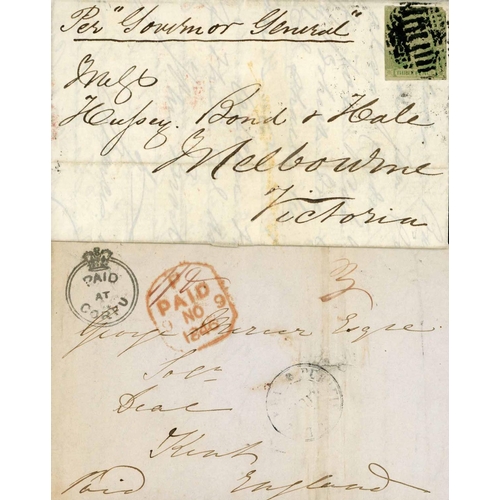 Per "Governor General"
Mess
Hussey, Bond & Hale
Melbourne
Victoria
PAID
AT
CORFU
P
PAID
NO 9
George Mercer Esqre
Solr
Deal
Kent
Paid England